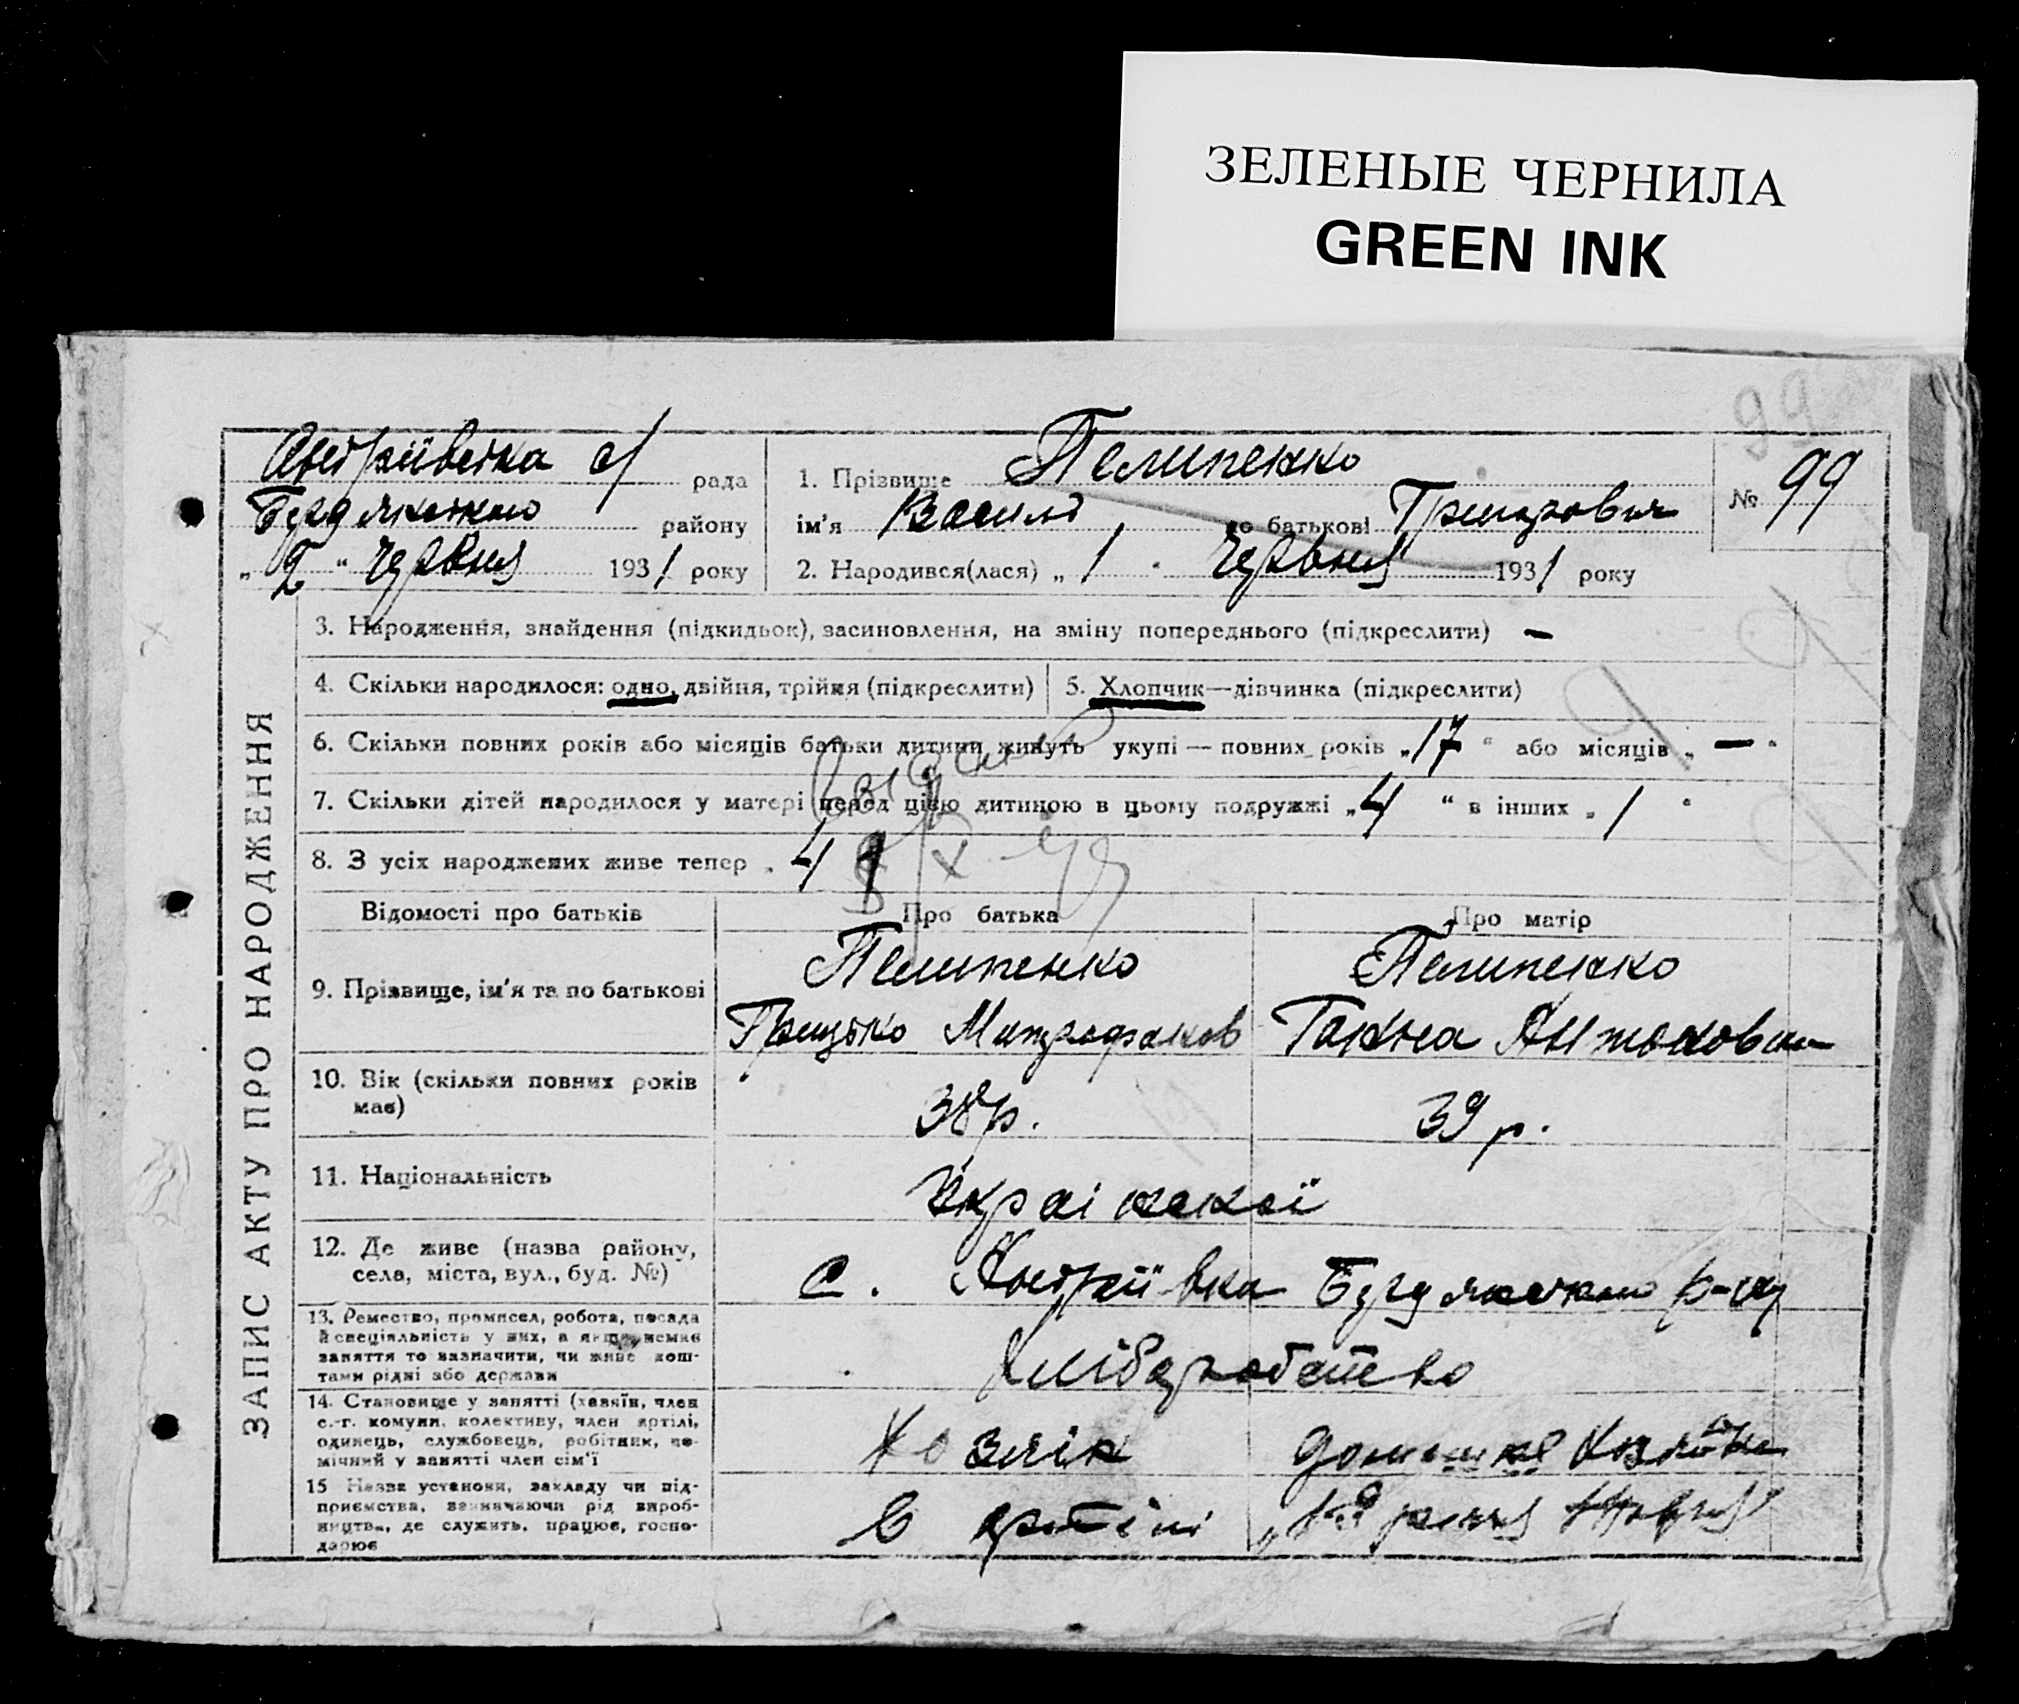 ЗЕЛЕНЫЕ ЧЕРНИЛА
GREEN INK
99
Андріївська с/ рада
району
„ 2 “ червня 1931 року
1. Прізвище Пелипенко
ім'я Василь по батькові Грицкович
2. Народився(лася) „ 1 “ червня 1931 року
№ 99
ЗАПИС АКТУ ПРО НАРОДЖЕННЯ
3. Народження, знайдення (підкидьок), засиновлення, на зміну попереднього (підкреслити) –
4. Скільки народилося: одно, двійня, трійня (підкреслити)
5. Хлопчик—дівчинка (підкреслити)
6. Скільки повних років або місяців батьки дитини живуть укупі — повних років „17“ або місяців „—“
7. Скільки дітей народилося у матері перед цією дитиною в цьому подружжі „4“ в інших „1“
8. З усіх народжених живе тепер „4
Відомості про батьків
Про батька
Про матір
9. Прізвище, ім'я та по батькові
Пелипенко
Грицько Митрофанов
Пелипенко
Ганна Антоновна
10. Вік (скільки повних років
має)
38 р.
39 р.
11. Національність
Української
12. Де живе (назва району,
села, міста, вул., буд. №)
с. Андріївка р-ну
13. Ремество, промисел, робота, посада
й спеціяльність у них, а якщо немає
заняття то зазначити, чи живе кош-
тами рідні або держави
Хліборобство
14. Становище у занятті (хазяїн, член
с.-г. комуни, колективу, член артілі,
одинець, службовець, робітник, по-
мічний у занятті член сім'ї
Хозяїн
домашня хозяйка
15 Назва установи, закладу чи під-
приємства, зазначаючи рід вироб-
ництва, де служить, працює, госпо-
дарює
в артілі